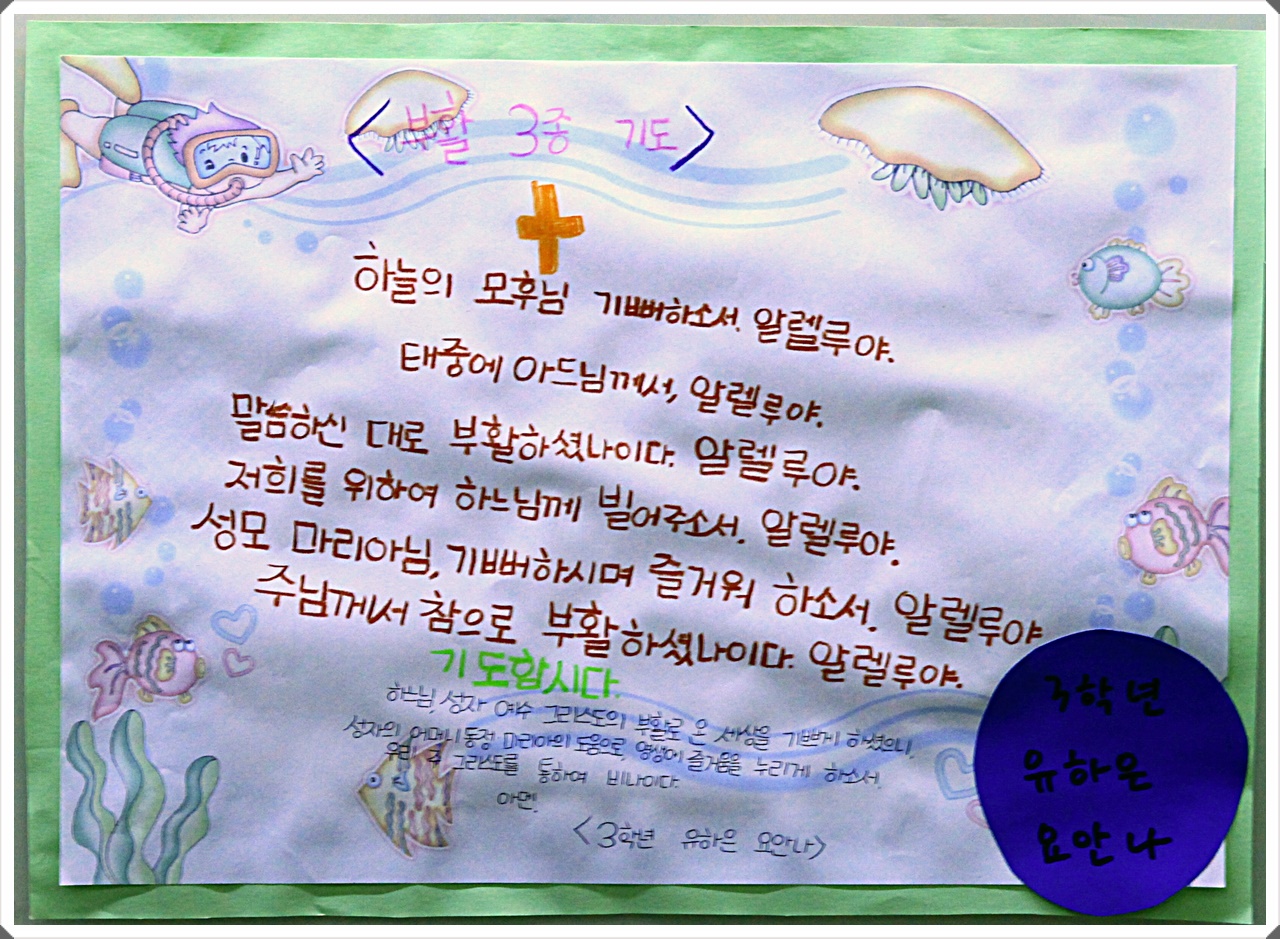 <부활 3종 기도>
하늘의 모후님 기뻐하소서. 알렐루야.
태중에 아드님께서, 알렐루야.
말씀하신 대로 부활하셨나이다. 알렐루야.
저희를 위하여 하느님께 빌어주소서. 알렐루야.
성모 마리아님, 기뻐하시며 즐거워 하소서. 알렐루야
주님께서 참으로 부활하셨나이다. 알렐루야.
기도합시다.
하느님, 성자 예수 그리스도의 부활로 온 세상을 기쁘게 하셨으니,
성자의 어머니 동정 마리아의 도움으로, 영생에 즐거움을 누리게 하소서.
우리 주 그리스도를 통하여 비나이다.
아멘.
<3학년 유하은 요안나>
3학년
유하은
요안나